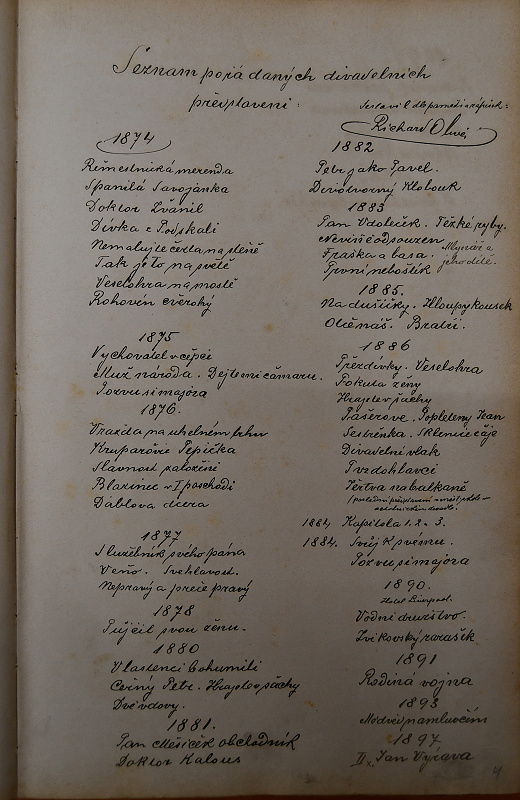 Seznam pořádaných divadelních
představení:
Sestavil dle paměti a zápisek:
Richard
1874
Řemeslnická merenda
Spanilá Savojanka
Doktor Zvánil
Dívka z Podskalí
Nemalujte čerta na stěně
Tak je to na světě
Veselohra na mostě
Rohovín čverohý
1875
Vychovatel v čepci
Muž národa. Dejte mi čamaru.
Pozvu si majora
1876.
Vražda na uhelném trhu
Kruparovic Pepička
Slavnost založení
Blázinec v I poschodí
Ďáblova dcera
1877
Služebník svého pána
Veňo. Svéhlavost.
Nepravý a prece pravý
1878
Půjčil svou ženu.
1880
Vlastenci bohumilí
Černý Petr. Hrajte v šachy
Dvě vdovy.
1881.
Pan Měsíček obchodník
Doktor Kalous
1882
Petr jako Pavel.
Divotvorný Klobouk
1883
Pan Vdoleček. Těžké ryby.
Nevině odsouzen
Mlynář a
jeho dítě.
Fraška a basa.
První nebožtík
1885.
Na dušičky. Hloupý kousek
Otčenáš. Bratři.
1886
Přezdívky. Veselohra
Pokuta ženy
Hrajte v šachy
Pašerové. Popletený Jean
Sestřenka. Sklenice čaje
Divadelní vlak
Tvrdohlavci
Žertva na balkaně
1884 Kapitola 1. 2. 3.
1884. Svůj k svému.
Pozvu si majora
1890.
Hotel Liverpool.
Vodní družstvo.
Zvíkovský rarášek
1891
Rodiná vojna
1893
Medvěd námluvčím
1897
II. Jan Výrava